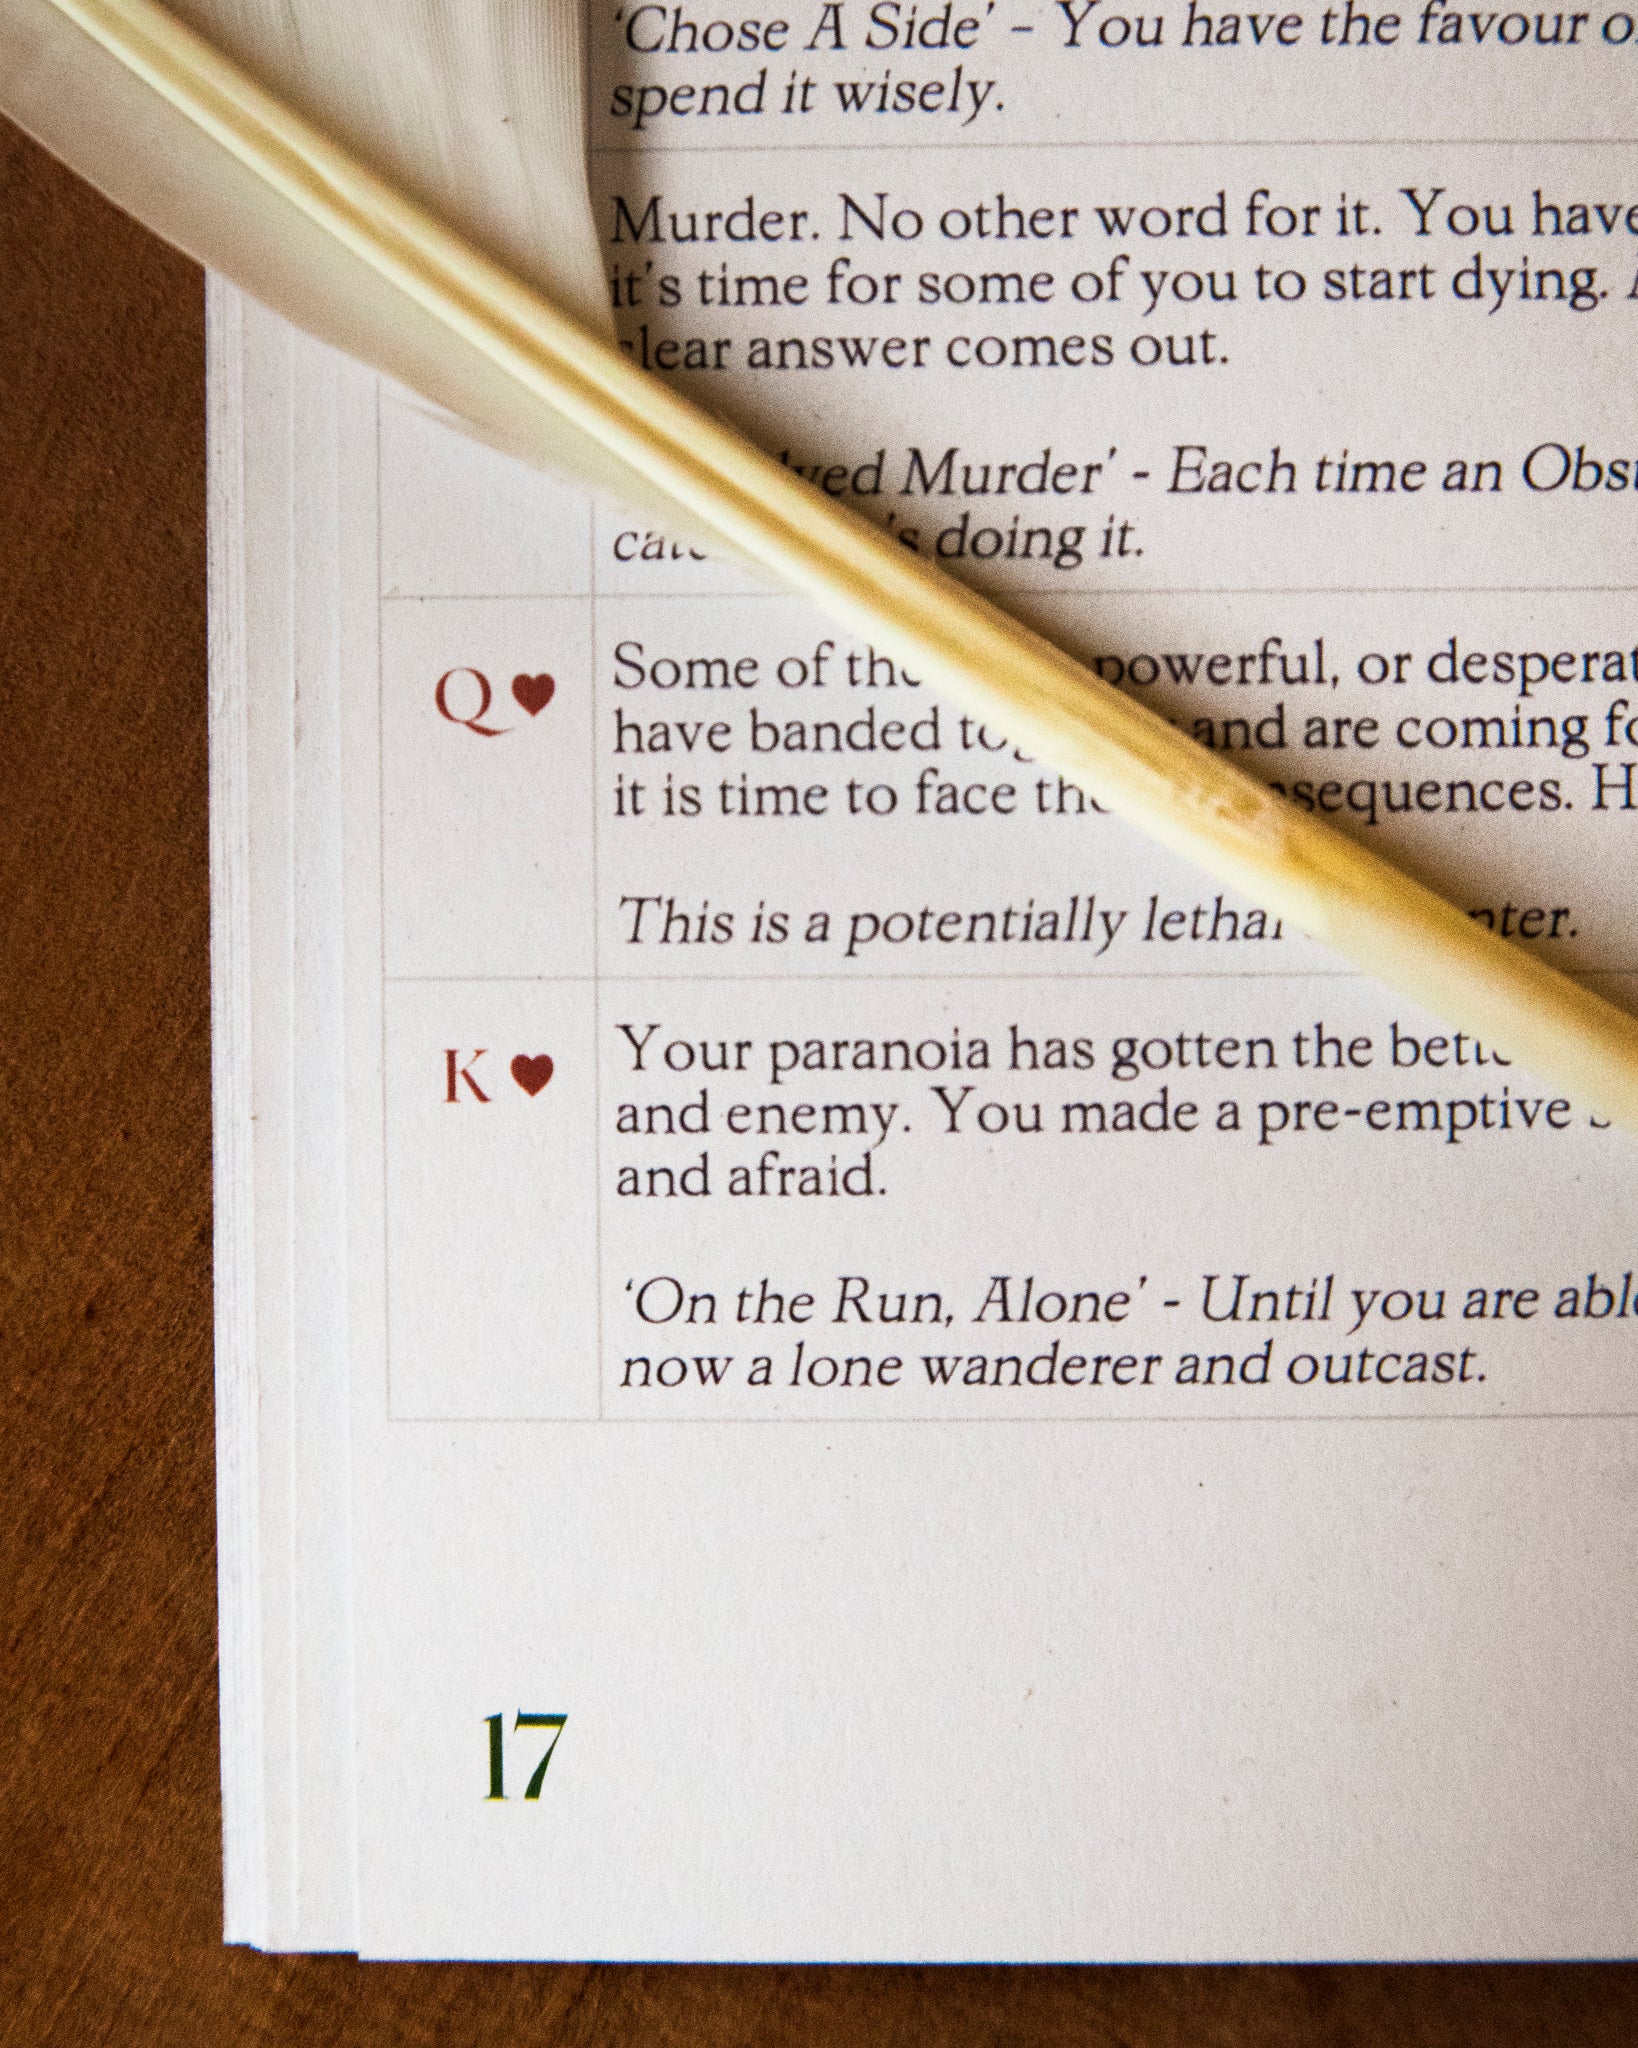 'Chose A Side' - You have the favour
spend it wisely.
Murder. No other word for it. You have
it's time for some of you to start dying.
answer comes out.
Murder' - Each time an
doing it.
Q♥ Some of powerful, or
have banded and are coming
it is time to face
This is a potentially
K♥ Your paranoia has gotten the
and enemy. You made a pre-emptive
and afraid.
'On the Run, Alone' - Until you are
now a lone wanderer and outcast.
17